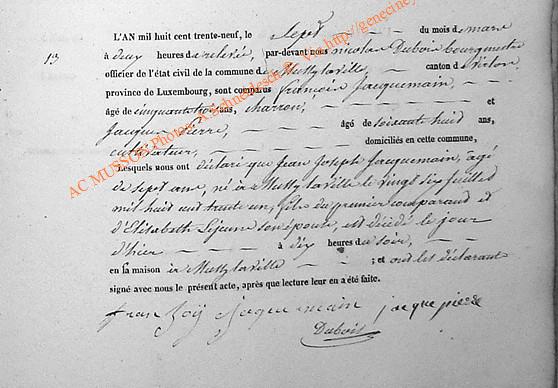 13
L'AN mil huit cent trente-neuf, le sept du mois de mars
à deux heures de relevé, par-devant nous nicolas Dubois bourgmestre
officier de l'état civil de la commune de Mussy la ville, canton d'Virton,
province de Luxembourg, sont comparus françois Jacquemain,
âgé de cinquante trois ans, charron, et
Jacques Pierre, âgé de soixante huit ans,
cultivateur, domiciliés en cette commune,
Lesquels nous ont déclaré que Jean Joseph Jacquemain, agé
de sept ans, né à Mussy la ville le vingt six juillet
mil huit cent trente un, fils du premier comparant et
d'Elisabeth Lejeune son épouse, est décédé le jour
d'hier à dix heures du soir,
en sa maison à Mussy la ville ; et ont les déclarants
signé avec nous le présent acte, après que lecture leur en a été faite.
jacque pierre
Dubois
AC MUSSON Photos
http://geneciney